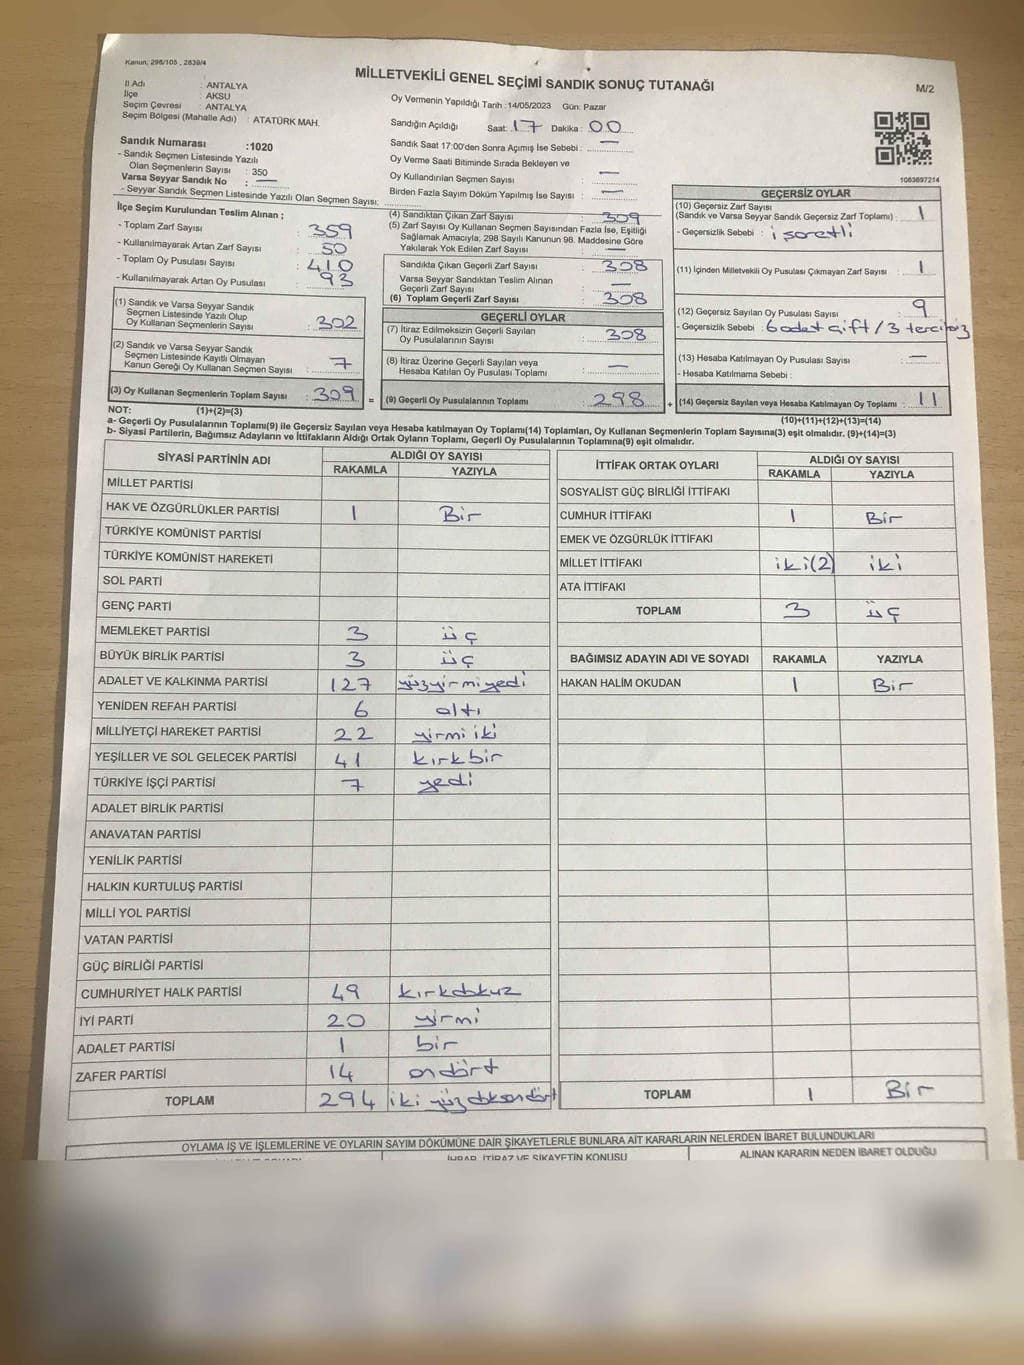 Kanun; 298/105 , 2839/4
MİLLETVEKİLİ GENEL SEÇİMİ SANDIK SONUÇ TUTANAĞI
M/2
İl Adı : ANTALYA
İlçe : AKSU
Seçim Çevresi : ANTALYA
Seçim Bölgesi (Mahalle Adı) : ATATÜRK MAH.
Oy Vermenin Yapıldığı Tarih :14/05/2023 Gün: Pazar
Sandığın Açıldığı Saat: 17 Dakika: 00
Sandık Saat 17:00'den Sonra Açımış İse Sebebi : —
Oy Verme Saati Bitiminde Sırada Bekleyen ve
Oy Kullandırılan Seçmen Sayısı : —
Birden Fazla Sayım Döküm Yapılmış İse Sayısı : —
1083697214
Sandık Numarası :1020
- Sandık Seçmen Listesinde Yazılı
Olan Seçmenlerin Sayısı : 350
Varsa Seyyar Sandık No : —
- Seyyar Sandık Seçmen Listesinde Yazılı Olan Seçmen Sayısı:
İlçe Seçim Kurulundan Teslim Alınan ;
- Toplam Zarf Sayısı : 359
- Kullanılmayarak Artan Zarf Sayısı : 50
- Toplam Oy Pusulası Sayısı : 410
- Kullanılmayarak Artan Oy Pusulası : 93
(1) Sandık ve Varsa Seyyar Sandık
Seçmen Listesinde Yazılı Olup
Oy Kullanan Seçmenlerin Sayısı : 302
(2) Sandık ve Varsa Seyyar Sandık
Seçmen Listesinde Kayıtlı Olmayan
Kanun Gereği Oy Kullanan Seçmen Sayısı : 7
(3) Oy Kullanan Seçmenlerin Toplam Sayısı : 309
(4) Sandıktan Çıkan Zarf Sayısı : 309
(5) Zarf Sayısı Oy Kullanan Seçmen Sayısından Fazla İse, Eşitliği
Sağlamak Amacıyla; 298 Sayılı Kanunun 98. Maddesine Göre
Yakılarak Yok Edilen Zarf Sayısı : —
Sandıkta Çıkan Geçerli Zarf Sayısı : 308
Varsa Seyyar Sandıktan Teslim Alınan
Geçerli Zarf Sayısı : —
(6) Toplam Geçerli Zarf Sayısı : 308
GEÇERLİ OYLAR
(7) İtiraz Edilmeksizin Geçerli Sayılan
Oy Pusulalarının Sayısı : 308
(8) İtiraz Üzerine Geçerli Sayılan veya
Hesaba Katılan Oy Pusulası Toplamı : —
= (9) Geçerli Oy Pusulalarının Toplamı : 298
GEÇERSİZ OYLAR
(10) Geçersiz Zarf Sayısı
(Sandık ve Varsa Seyyar Sandık Geçersiz Zarf Toplamı) : 1
- Geçersizlik Sebebi : işaretli
(11) İçinden Milletvekili Oy Pusulası Çıkmayan Zarf Sayısı : 1
(12) Geçersiz Sayılan Oy Pusulası Sayısı : 9
- Geçersizlik Sebebi : 6 adet çift / 3 tercihsiz
(13) Hesaba Katılmayan Oy Pusulası Sayısı : —
- Hesaba Katılmama Sebebi :
+ (14) Geçersiz Sayılan veya Hesaba Katılmayan Oy Toplamı : 11
NOT: (1)+(2)=(3) (10)+(11)+(12)+(13)=(14)
a- Geçerli Oy Pusulalarının Toplamı(9) ile Geçersiz Sayılan veya Hesaba katılmayan Oy Toplamı(14) Toplamları, Oy Kullanan Seçmenlerin Toplam Sayısına(3) eşit olmalıdır. (9)+(14)=(3)
b- Siyasi Partilerin, Bağımsız Adayların ve İttifakların Aldığı Ortak Oyların Toplamı, Geçerli Oy Pusulalarının Toplamına(9) eşit olmalıdır.
SİYASİ PARTİNİN ADI ALDIĞI OY SAYISI
RAKAMLA YAZIYLA
MİLLET PARTİSİ
HAK VE ÖZGÜRLÜKLER PARTİSİ 1 Bir
TÜRKİYE KOMÜNİST PARTİSİ
TÜRKİYE KOMÜNİST HAREKETİ
SOL PARTİ
GENÇ PARTİ
MEMLEKET PARTİSİ 3 üç
BÜYÜK BİRLİK PARTİSİ 3 üç
ADALET VE KALKINMA PARTİSİ 127 yüzyirmiyedi
YENİDEN REFAH PARTİSİ 6 altı
MİLLİYETÇİ HAREKET PARTİSİ 22 yirmi iki
YEŞİLLER VE SOL GELECEK PARTİSİ 41 kırkbir
TÜRKİYE İŞÇİ PARTİSİ 7 yedi
ADALET BİRLİK PARTİSİ
ANAVATAN PARTİSİ
YENİLİK PARTİSİ
HALKIN KURTULUŞ PARTİSİ
MİLLİ YOL PARTİSİ
VATAN PARTİSİ
GÜÇ BİRLİĞİ PARTİSİ
CUMHURİYET HALK PARTİSİ 49 kırkdokuz
İYİ PARTİ 20 yirmi
ADALET PARTİSİ 1 bir
ZAFER PARTİSİ 14 ondört
TOPLAM 294 iki yüz doksandört
İTTİFAK ORTAK OYLARI ALDIĞI OY SAYISI
RAKAMLA YAZIYLA
SOSYALİST GÜÇ BİRLİĞİ İTTİFAKI
CUMHUR İTTİFAKI 1 Bir
EMEK VE ÖZGÜRLÜK İTTİFAKI
MİLLET İTTİFAKI iki(2) iki
ATA İTTİFAKI
TOPLAM 3 üç
BAĞIMSIZ ADAYIN ADI VE SOYADI RAKAMLA YAZIYLA
HAKAN HALİM OKUDAN 1 Bir
TOPLAM 1 Bir
OYLAMA İŞ VE İŞLEMLERİNE VE OYLARIN SAYIM DÖKÜMÜNE DAİR ŞİKAYETLERLE BUNLARA AİT KARARLARIN NELERDEN İBARET BULUNDUKLARI
İHBAR, İTİRAZ VE ŞİKAYETİN KONUSU
ALINAN KARARIN NEDEN İBARET OLDUĞU